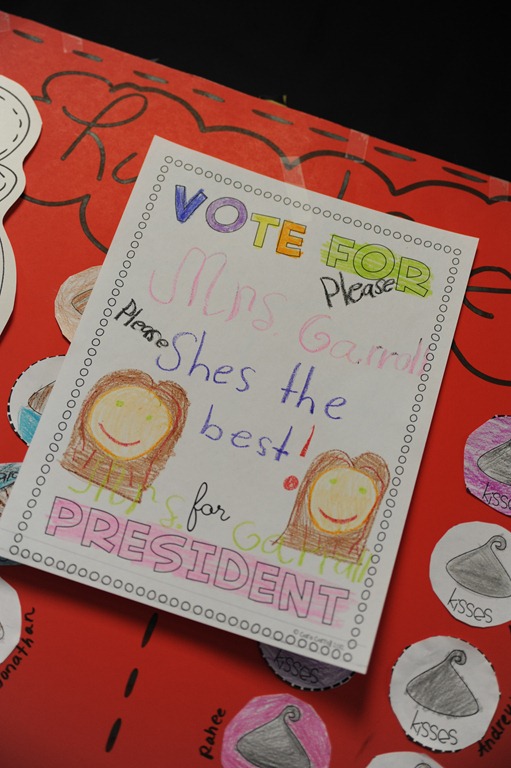 VOTE FOR
Please
Mrs. Garrall
Please Shes the
best!
for
Mrs. Garrall
PRESIDENT
kisses
kisses
kisses
kisses
Jonathan
Rahee
Andre